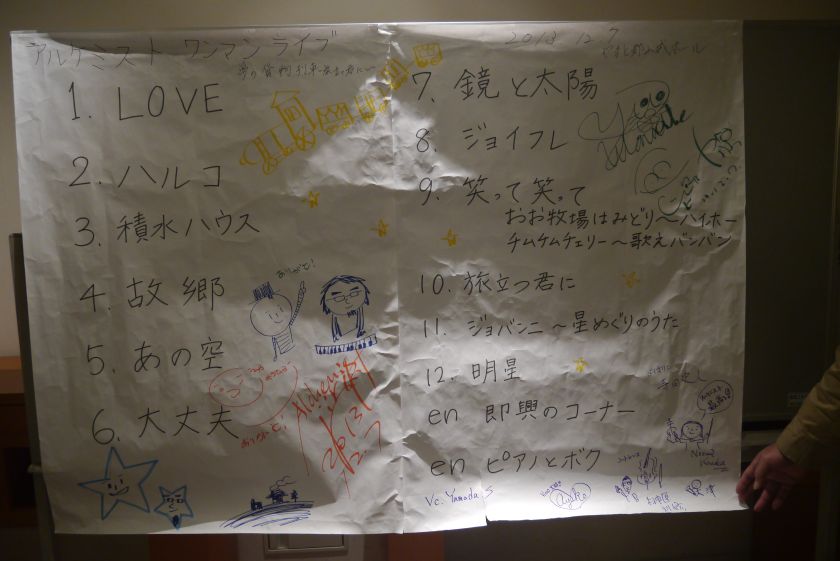 アルケミスト ワンマンライブ
2013 12.7
1. LOVE
2. ハルコ
3. 積水ハウス
4. 故郷
5. あの空
6. 大丈夫
ありがと!
ありがと!
Alchemist
2013
12.7
7. 鏡と太陽
8. ジョイフル
9. 笑って笑って
おお牧場はみどり〜ハイホー
チムチムチェリー〜歌えバンバン
10. 旅立つ君に
11. ジョバンニ〜星めぐりのうた
12. 明星
en 即興のコーナー
en ピアノとボク
Vc. Yamada